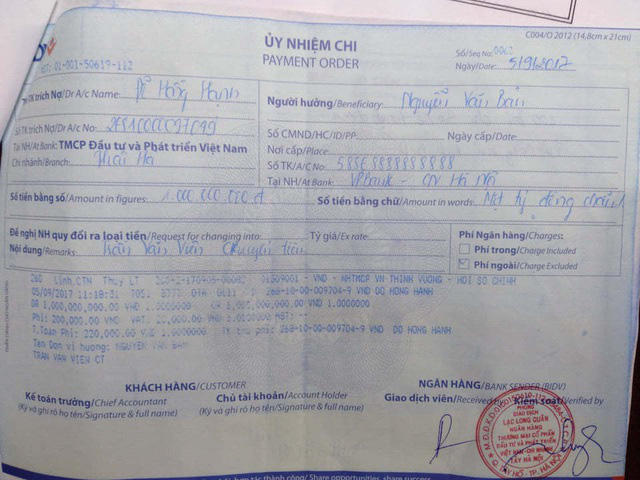 C004/O 2012 (14,8cm x 21cm)
ỦY NHIỆM CHI
PAYMENT ORDER
Số/Seq No: 0062
Ngày/Date: 5/9/2017
01-001-50619-112
Tên TK trích Nợ/Dr A/c Name: Đỗ Hồng Hạnh
Số TK trích nợ/Dr A/c No:
Tại NH/At Bank: TMCP Đầu tư và Phát triển Việt Nam
Chi nhánh/Branch: Thái Hà
Người hưởng/Beneficiary: Nguyễn Văn Bản
Số CMND/HC/ID/PP: Ngày cấp/Date:
Nơi cấp/Place
Số TK/A/C No:
Tại NH/At Bank: VPBank - CN Hà Nội
Số tiền bằng số/Amount in figures: 1.000.000.000 đ
Số tiền bằng chữ/Amount in words: Một tỷ đồng chẵn
Đề nghị NH quy đổi ra loại tiền/Request for changing into: Tỷ giá/Ex rate:
Nội dung/Remarks: Trần Văn Viên chuyển tiền
Phí Ngân hàng/Charges:
Phí trong/Charge Included
Phí ngoài/Charge Excluded
260 Linh,CTN Thuy LT 01309001 - VND - NHTMCP VN THINH VUONG - HOI SO CHINH
05/09/2017 11:10:31 7051
DR 1,000,000,000.00 VND 1.0000000 CR 1,000,000,000.00 VND 1.0000000
Phi: 200,000.00 VND VAT: 20,000.00 VND 1.0000000 MST:
T.Toan Phi: 220,000.00 VND 1.0000000 TK thu phi: 268-10-00-009704-9 VND DO HONG HANH
Ten Don vi huong: NGUYEN VAN BAN
TRAN VAN VIEN CT
KHÁCH HÀNG/CUSTOMER
NGÂN HÀNG/BANK SENDER (BIDV)
Kế toán trưởng/Chief Accountant
(Ký và ghi rõ họ tên/Signature & full name)
Chủ tài khoản/Account Holder
(Ký và ghi rõ họ tên/Signature & full name)
Giao dịch viên/Received by
Kiểm soát/Verified by
PHÒNG
GIAO DỊCH
LẠC LONG QUÂN
NGÂN HÀNG
THƯƠNG MẠI CỔ PHẦN
ĐẦU TƯ VÀ PHÁT TRIỂN
VIỆT NAM-CHI NHÁNH
TÂY HÀ NỘI
Q.TÂY HỒ-TP.HÀ NỘI
hội hợp tác thành công/ Share opportunities, share success